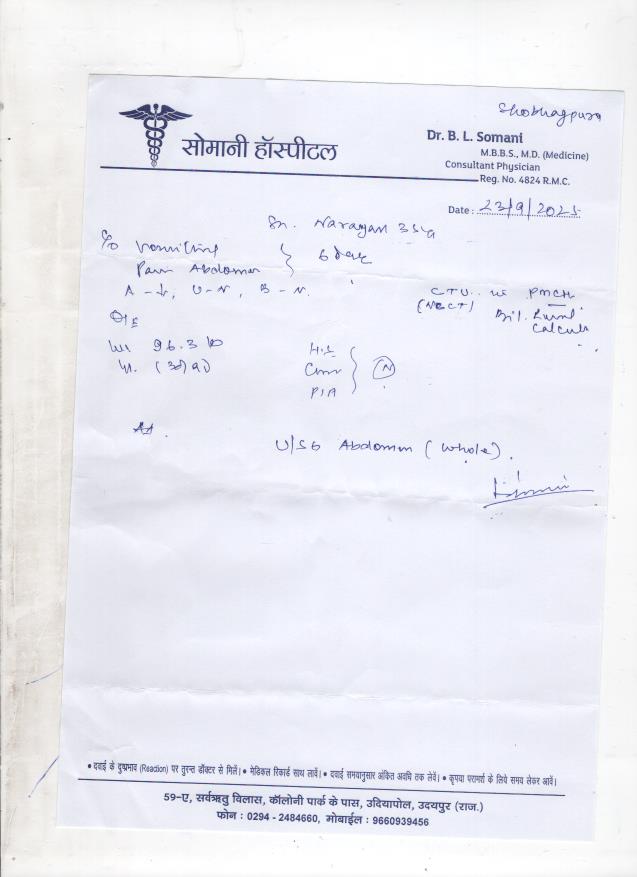 Shobhagpura
सोमानी हॉस्पीटल
Dr. B. L. Somani
M.B.B.S., M.D. (Medicine)
Consultant Physician
Reg. No. 4824 R.M.C.
Date : 23/9/2025
Narayan
c/o Vomiting
Pain Abdomen
A - , U - N, B - N.
CTU PMCH
(NCCT) Bil. Renal
Calculi
O/E
96.3
H.S
P/A
N
U/SG Abdomen (Whole).
• दवाई के दुष्प्रभाव (Reaction) पर तुरन्त डॉक्टर से मिलें। • मेडिकल रिकार्ड साथ लावें। • दवाई समयानुसार अंकित अवधि तक लेवें। • कृपया परामर्श के लिये समय लेकर आवें।
59-ए, सर्वऋतु विलास, कॉलोनी पार्क के पास, उदियापोल, उदयपुर (राज.)
फोन : 0294 - 2484660, मोबाईल : 9660939456